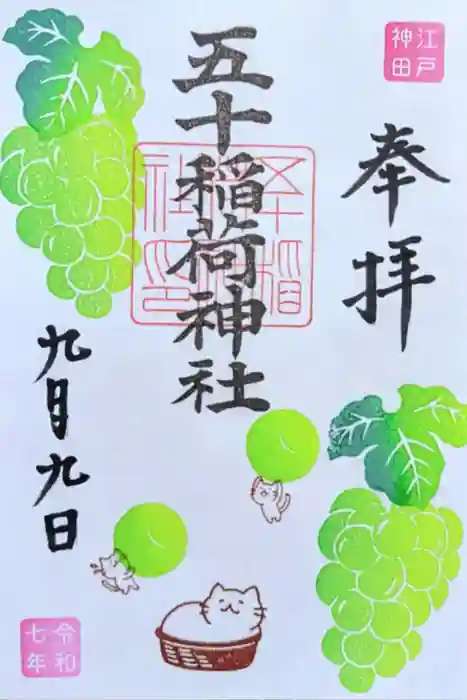 江戸
神田
奉拝
五十稲荷神社
九月九日
令和
七年